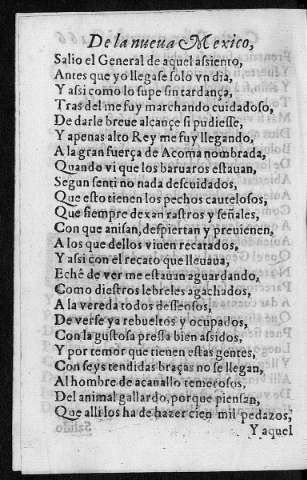 De la nueua Mexico,
Salio el General de aquel assiento,
Antes que yo llegase solo vn dia,
Y assi como lo supe sin tardança,
Tras del me fuy marchando cuidadoso,
De darle breue alcançe si pudiesse,
Y apenas alto Rey me fuy llegando,
A la gran fuerça de Acoma nombrada,
Quando vi que los baruaros estauan,
Segun senti no nada descuidados,
Que esto tienen los pechos cautelosos,
Que siempre dexan rastros y señales,
Con que auisan, despiertan y preuienen,
A los que dellos viuen recatados,
Y assi con el recato que lleuaua,
Eché de ver me estauan aguardando,
Como diestros lebreles agachados,
A la vereda todos desseosos,
De verse ya rebueltos y ocupados,
Con la gustosa pressa bien assidos,
Y por temor que tienen estas gentes,
Con seys tendidas braças no se llegan,
Al hombre de acauallo temerosos,
Del animal gallardo, porque piensan,
Que alli los ha de hazer cien mil pedazos,
Y aquel